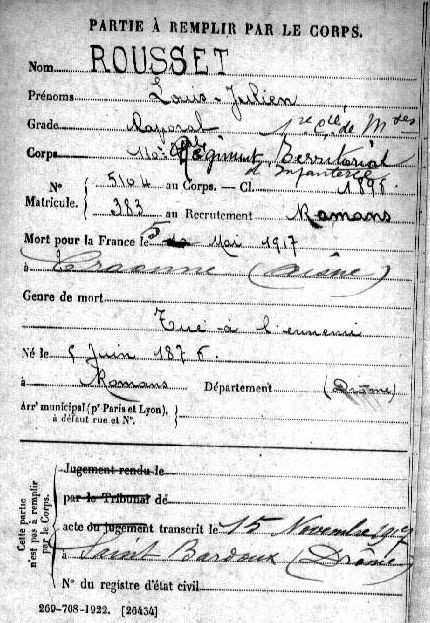 PARTIE À REMPLIR PAR LE CORPS.
Nom ROUSSET
Prénoms Louis-Julien
Grade Caporal 1re Cie de Mtes
Corps 110e Régiment Territorial
d'Infanterie
N° Matricule. { 5104 au Corps. — Cl. 1896.
383 au Recrutement Romans
Mort pour la France le 5 Mai 1917
à Craonne (Aisne)
Genre de mort
Tué à l'ennemi
Né le 5 Juin 1876.
à Romans Département (Drôme)
Arrt municipal (pr Paris et Lyon), à défaut rue et N°. }
Cette partie n'est pas à remplir par le Corps.
Jugement rendu le
par le Tribunal de
acte ou jugement transcrit le 15 Novembre 1917
à Saint Bardoux (Drôme)
N° du registre d'état civil
269-708-1922. [26434]